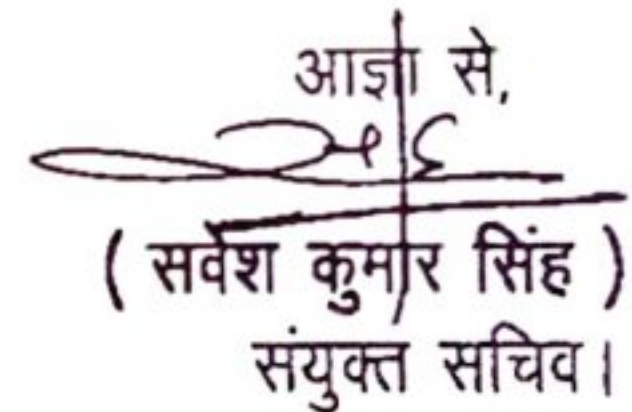 आज्ञा से,
( सर्वेश कुमार सिंह )
संयुक्त सचिव।